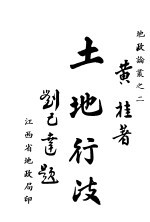 地政論叢之二
黄桂著
土地行政
劉己達題
江西省地政局印